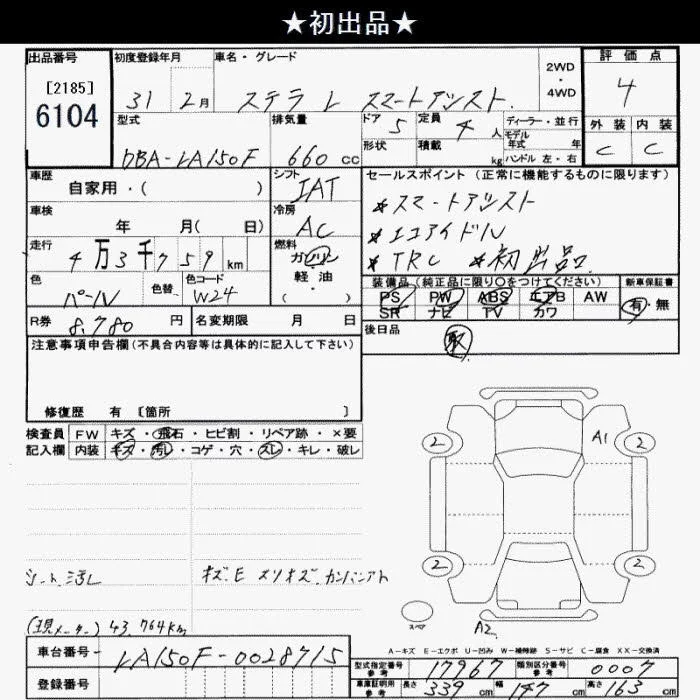 ★初出品★
出品番号 初度登録年月 車名・グレード 評価点
[2185] 31 2月 ステラ L スマートアシスト 2WD・4WD 4
6104 型式 排気量 ドア 定員 ディーラー・並行 外装 内装
DBA-LA150F 660cc 5 4人 モデル年式 年 C C
形状 積載 kg ハンドル 左・右
車歴 シフト セールスポイント(正常に機能するものに限ります)
自家用・( ) IAT ★スマートアシスト
車検 冷房 ★エコアイドル
年 月( 日) AC ★TRC ★初出品
走行 燃料
4万3千759km ガソリン
色 色替 色コード 軽油 装備品(純正品に限り○をつけてください) 新車保証書
パール W24 ( ) PS PW ABS エアB AW 有・無
SR ナビ TV カワ
R券 8,780円 名変期限 月 日 後日品
注意事項申告欄(不具合内容等は具体的に記入して下さい) 取
修復歴 有 [箇所 ]
検査員 FW キズ・飛石・ヒビ割・リペア跡・×要
記入欄 内装 キズ・汚レ・コゲ・穴・スレ・キレ・破レ
2 A1 2
シート汚レ キズ.E スリキズ.カンバンアト 2 2
(現メーター) 43,764km スペア A2
A-キズ E-エクボ U-凹み W-補修跡 S-サビ C-腐食 XX-交換済
車台番号 LA150F-0028715 型式指定番号 参考 17967 類別区分番号 参考 0007
登録番号 車庫証明用 参考 長さ 339cm 幅 147cm 高さ 163cm